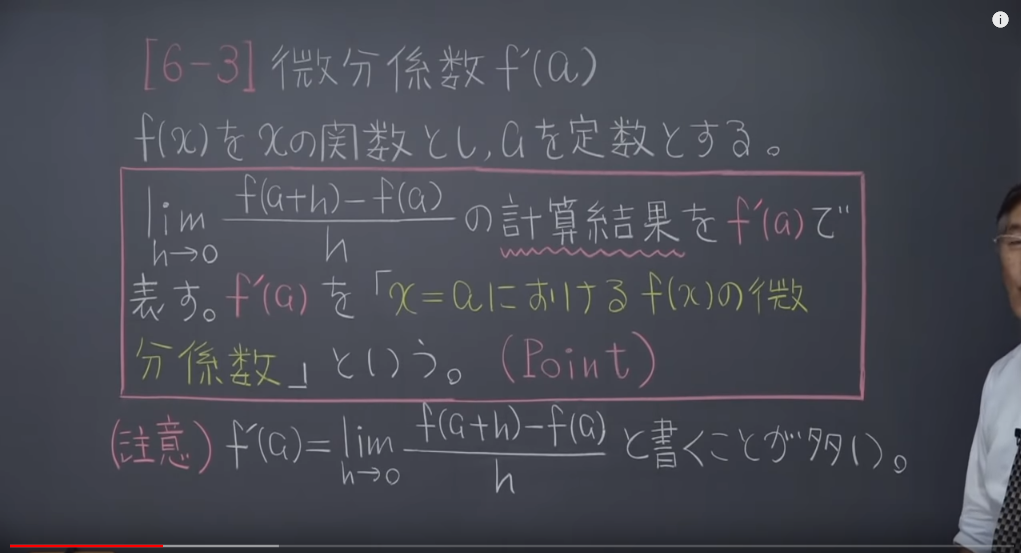 [6-3] 微分係数 f'(a)
f(x)をxの関数とし,aを定数とする。
lim h→0 f(a+h)-f(a) / h の計算結果をf'(a)で
表す。f'(a)を「x=aにおけるf(x)の微
分係数」という。(Point)
(注意) f'(a)=lim h→0 f(a+h)-f(a) / h と書くことが多い。